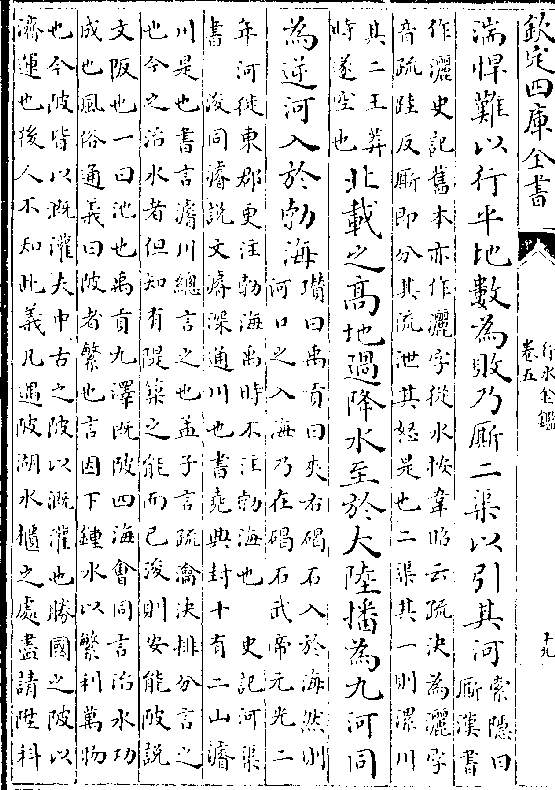 欽定四庫全書
行水金鑑
卷五
十九
湍悍難以行平地數為敗乃廝二渠以引其河
索隱曰
廝漢書
作灑史記舊本亦作灑字從水按韋昭云疏決為灑字
音疏跬反廝即分其流泄其怒是也二渠其一則漯川
其二王莽
時遂空也
北載之高地過降水至於大陸播為九河同
為逆河入於勃海
瓚曰禹貢曰夾右碣石入於海然則
河口之入海乃在碣石武帝元光二
年河徙東郡更注勃海禹時不注勃海也 史記河渠
書 浚同濬說文濬深通川也書堯典封十有二山濬
川是也書言濬川總言之也孟子言疏瀹決排分言之
也今之治水者但知有隄築之能而已浚則安能陂說
文阪也一曰池也禹貢九澤既陂四海會同言治水功
成也風俗通義曰陂者繁也言因下鍾水以繁利萬物
也今陂皆以溉灌夫中古之陂以溉灌也勝國之陂以
濟運也後人不知此義凡遇陂湖水櫃之處盡請陞科